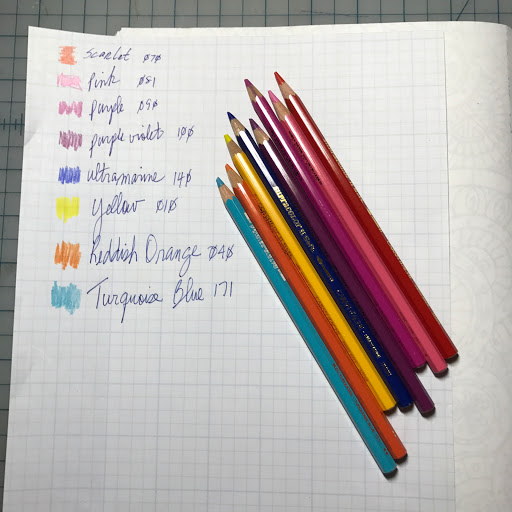 Scarlet 070
Pink 081
purple 090
purple violet 100
ultramarine 140
Yellow 010
Reddish Orange 040
Turquoise Blue 171